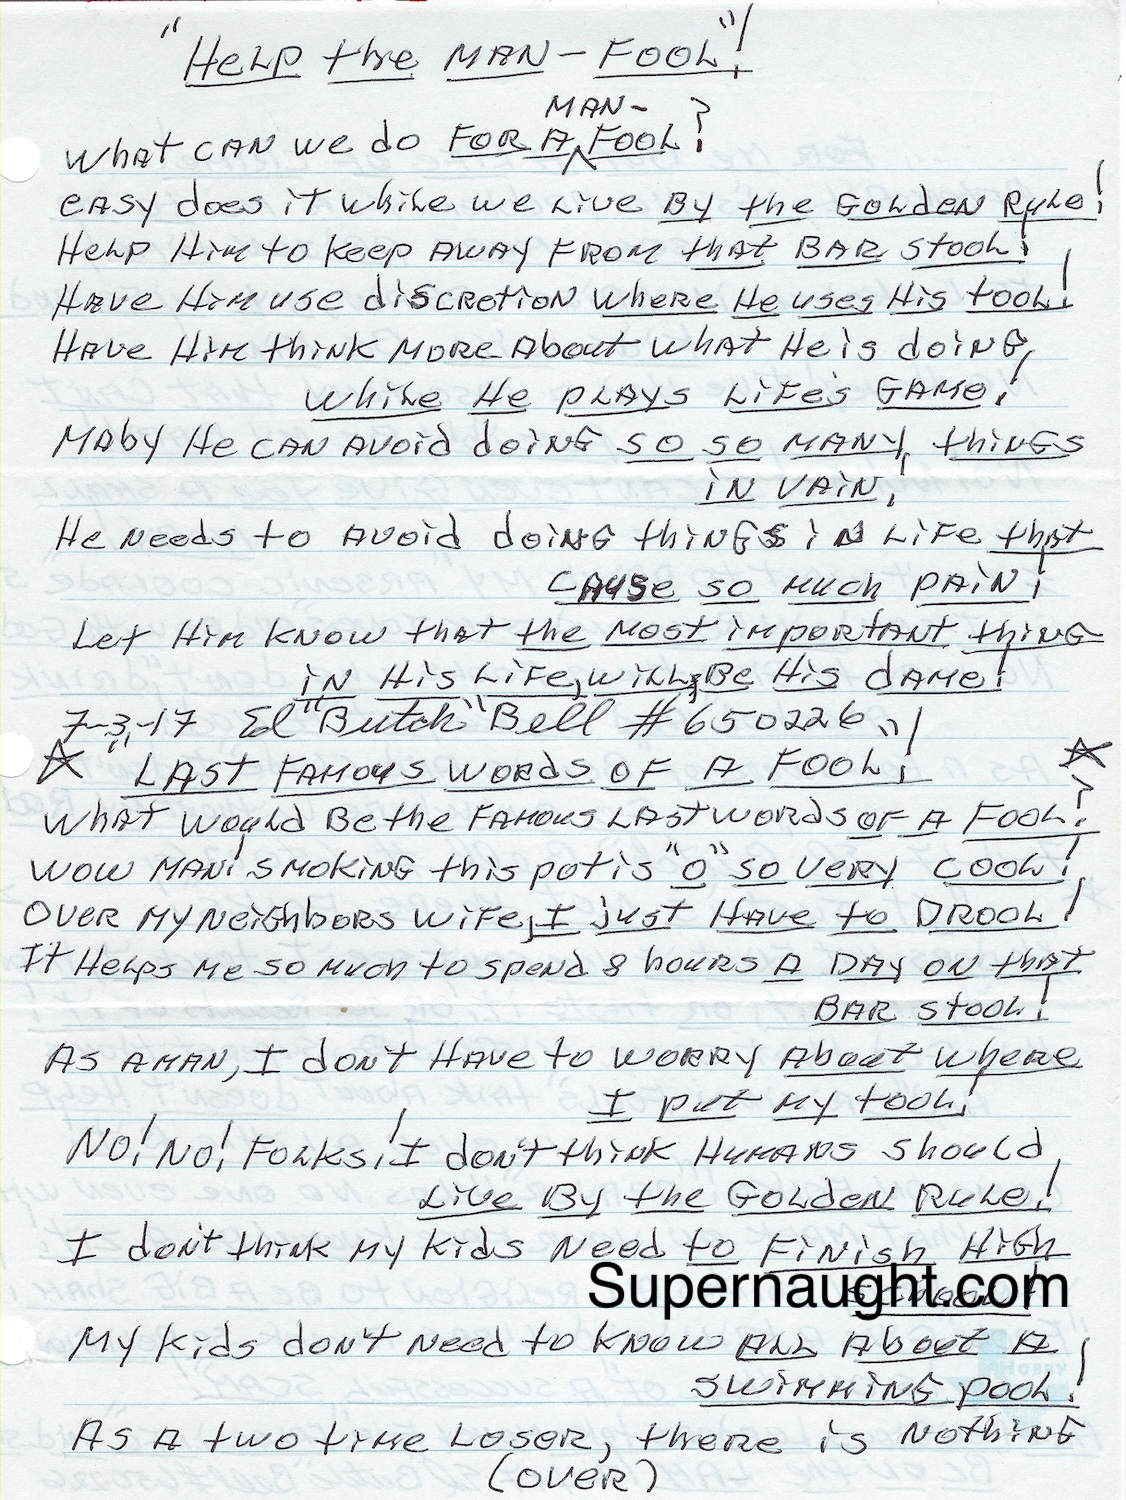 "HELP the MAN-FOOL"!
MAN-
WHAT CAN we do FOR A FOOL?
EASY does iT while we Live By the GOLDEN RULE!
HELP HIM TO KEEP AWAY FROM that BAR STOOL!
HAVE HIM use discretion where He uses His tool!
HAVE HIM think MORE About what He is doing,
while He PLAYS LIFE'S GAME!
MABY He CAN AVOID doing SO SO MANY, things
IN VAIN!
He Needs to AVOID doing things IN LIFE that
CAUSE SO MUCH PAIN!
Let HIM KNOW that the MOST important thing
IN His LIFE, WILL, Be His DAME!
7-3-17 Ed "Butch" Bell #650226
☆ "LAST FAMOUS WORDS OF A FOOL"! ☆
WHAT WOULD Be the FAMOUS LAST WORDS OF A FOOL?
WOW MAN! SMOKING this pot is "O" SO VERY COOL!
OVER MY Neighbors wife, I just HAVE to DROOL!
It HELPS Me SO MUCH to spend 8 hours A DAY ON that
BAR stool!
AS A MAN, I don't HAVE to WORRY About where
I put MY tool!
NO! NO! FOLKS! I don't think HUMANS should
Live By the GOLDEN RULE!
I don't think MY Kids Need to Finish HIGH
SCHOOL!
Supernaught.com
MY Kids don't Need to KNOW ALL About A
SWIMMING POOL!
AS A two time LOSER, there is Nothing
(OVER)